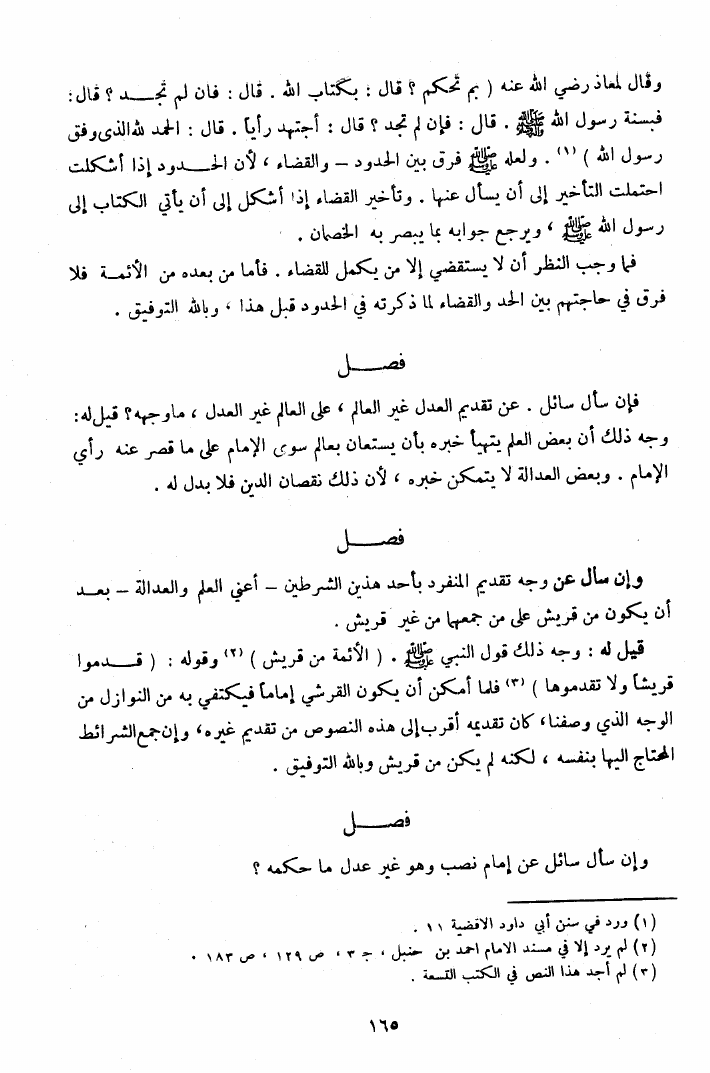 وقال لمعاذ رضي الله عنه ( بم تحكم ؟ قال : بكتاب الله . قال : فان لم تجـــد ؟ قال :
فبسنة رسول الله ﷺ . قال : فإن لم تجد ؟ قال : أجتهد رأياً . قال : الحمد لله الذي وفق
رسول الله ) (١) . ولعله ﷺ فرق بين الحدود – والقضاء ، لأن الحـــدود إذا أشكلت
احتملت التأخير إلى أن يسأل عنها . وتأخير القضاء إذا أشكل إلى أن يأتي الكتاب إلى
رسول الله ﷺ ، ويرجع جوابه بما يبصر به الخصمان .
فما وجب النظر أن لا يستقضي إلا من يكمل للقضاء . فأما من بعده من الأئمـة فلا
فرق في حاجتهم بين الحد والقضاء لما ذكرته في الحدود قبل هذا ، وبالله التوفيق .
فصـــل
فإن سأل سائل . عن تقديم العدل غير العالم ، على العالم غير العدل ، ماوجهه؟ قيل له :
وجه ذلك أن بعض العلم يتهيأ خبره بأن يستعان بعالم سوى الإمام على ما قصر عنه رأي
الإمام . وبعض العدالة لا يتمكن خبره ، لأن ذلك نقصان الدين فلا بدل له .
فصـــل
وإن سأل عن وجه تقديم المنفرد بأحد هذين الشرطين – أعني العلم والعدالة – بعـد
أن يكون من قريش على من جمعها من غير قريش .
قيل له : وجه ذلك قول النبي ﷺ . ( الأئمة من قريش ) (٢) وقوله : ( قـــدموا
قريشاً ولا تقدموها ) (٣) فلما أمكن أن يكون القرشي إماماً فيكتفي به من النوازل من
الوجه الذي وصفنا، كان تقديمه أقرب إلى هذه النصوص من تقديم غيره، وإن جمع الشرائط
المحتاج اليها بنفسه ، لكنه لم يكن من قريش وبالله التوفيق .
فصـــل
وإن سأل سائل عن إمام نصب وهو غير عدل ما حكمه ؟
(١) ورد في سنن أبي داود الاقضية ١١ .
(٢) لم يرد إلا في مسند الامام احمد بن حنبل ، جـ ٣ ، ص ١٢٩ ، ص ١٨٣ .
(٣) لم أجد هذا النص في الكتب التسعة .
١٦٥